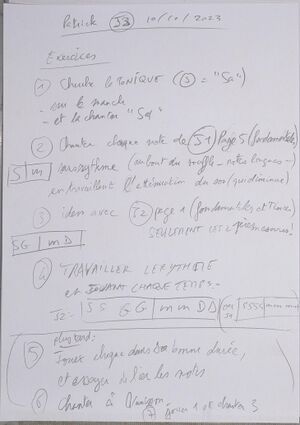 Patrick J3 10/10/2023
Exercices
① Chanter le TONIQUE (J = "Sa")
- sur le manche
- et la chanter "Sa"
② Chanter chaque note de J1 Page 5 (fondamentales)
S | m sans rythme (au bout du souffle - notes longues -
en travaillant l'atténuation du son (qui diminue)
③ idem avec J2 page 1 (fondamentales et Tierces)
SEULEMENT LES 2
SG | m D
④ TRAVAILLER LE RYTHME
et JOUANT CHAQUE TEMPS.
J2: SS GG | mm DD
⑤ plus tard:
Jouer chaque dans sa bonne durée,
et essayer de lier les notes
⑥ Chanter à l'unisson.
⑦ jouer 1 et chanter 3